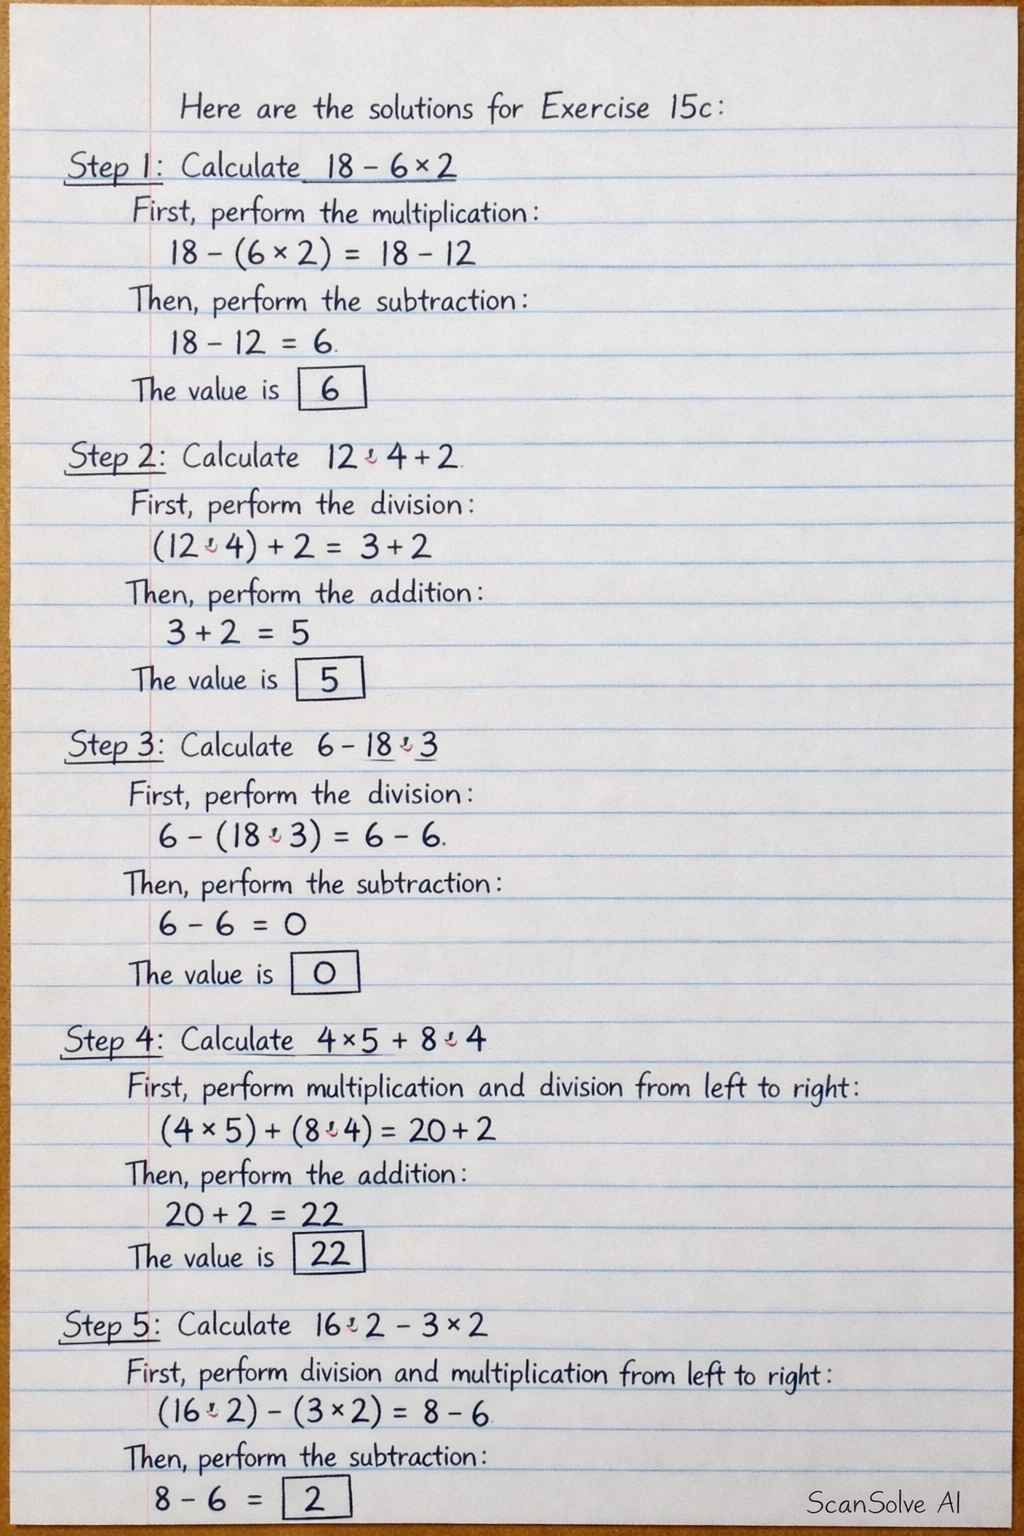 Here are the solutions for Exercise 15c:
Step 1: Calculate 18 - 6 × 2
First, perform the multiplication:
18 - (6 × 2) = 18 - 12
Then, perform the subtraction:
18 - 12 = 6.
The value is 6
Step 2: Calculate 12 : 4 + 2.
First, perform the division:
(12 : 4) + 2 = 3 + 2
Then, perform the addition:
3 + 2 = 5
The value is 5
Step 3: Calculate 6 - 18 : 3
First, perform the division:
6 - (18 : 3) = 6 - 6.
Then, perform the subtraction:
6 - 6 = 0
The value is 0
Step 4: Calculate 4 × 5 + 8 : 4
First, perform multiplication and division from left to right:
(4 × 5) + (8 : 4) = 20 + 2
Then, perform the addition:
20 + 2 = 22
The value is 22
Step 5: Calculate 16 : 2 - 3 × 2
First, perform division and multiplication from left to right:
(16 : 2) - (3 × 2) = 8 - 6
Then, perform the subtraction:
8 - 6 = 2
ScanSolve AI